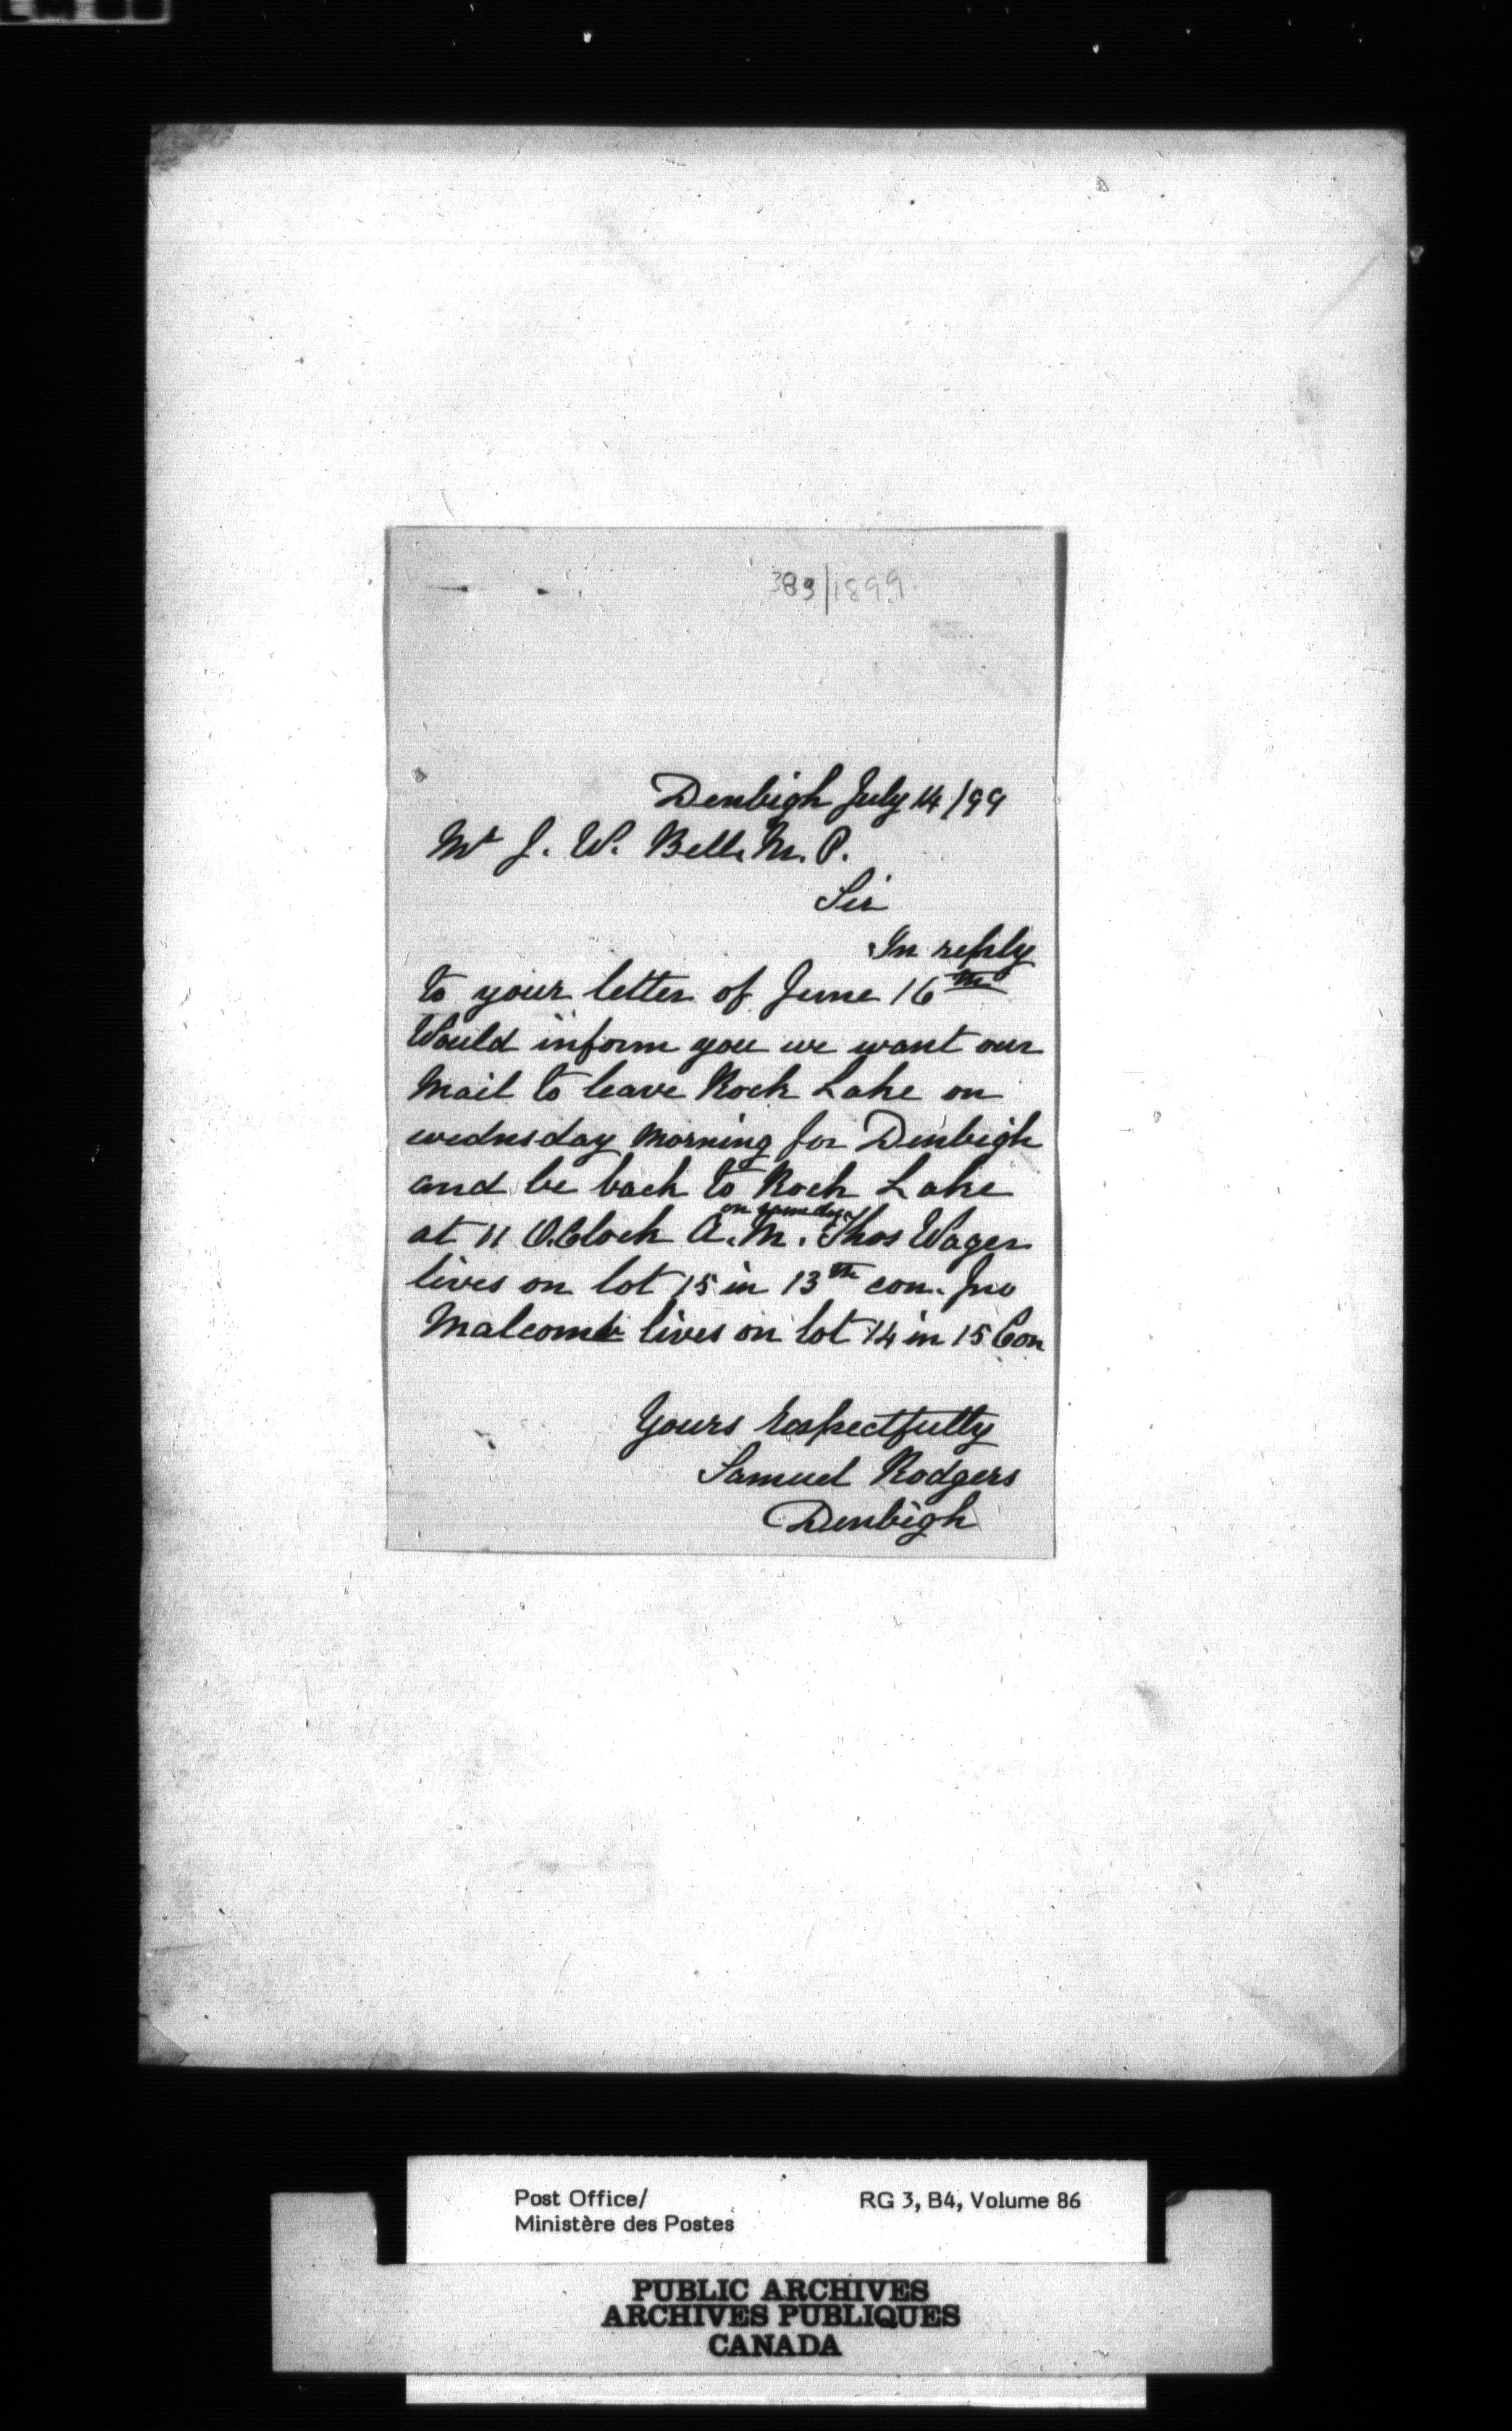 383/1899.
Denbigh July 14/99
Mr J. W. Bell M. P.
Sir
In reply
to your letter of June 16th
Would inform you we want our
Mail to leave Rock Lake on
wednesday Morning for Denbigh
and be back to Rock Lake
on same day
at 11 O.Clock A.M. Thos Wager
lives on lot 15 in 13th con. Jno
Malcomb lives on lot 14 in 15 Con
Yours Respectfully
Samuel Rodgers
Denbigh
Post Office/ RG 3, B4, Volume 86
Ministère des Postes
PUBLIC ARCHIVES
ARCHIVES PUBLIQUES
CANADA